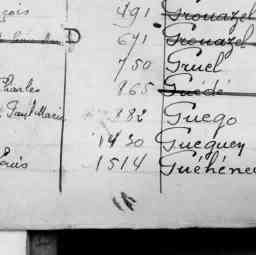 çois 491 Grouazel
D 671 Grouazel
750 Gruel
Charles 865 Guédé
Paul Marie 882 Guego
1430 Gueguen
Louis 1514 Guéhénec